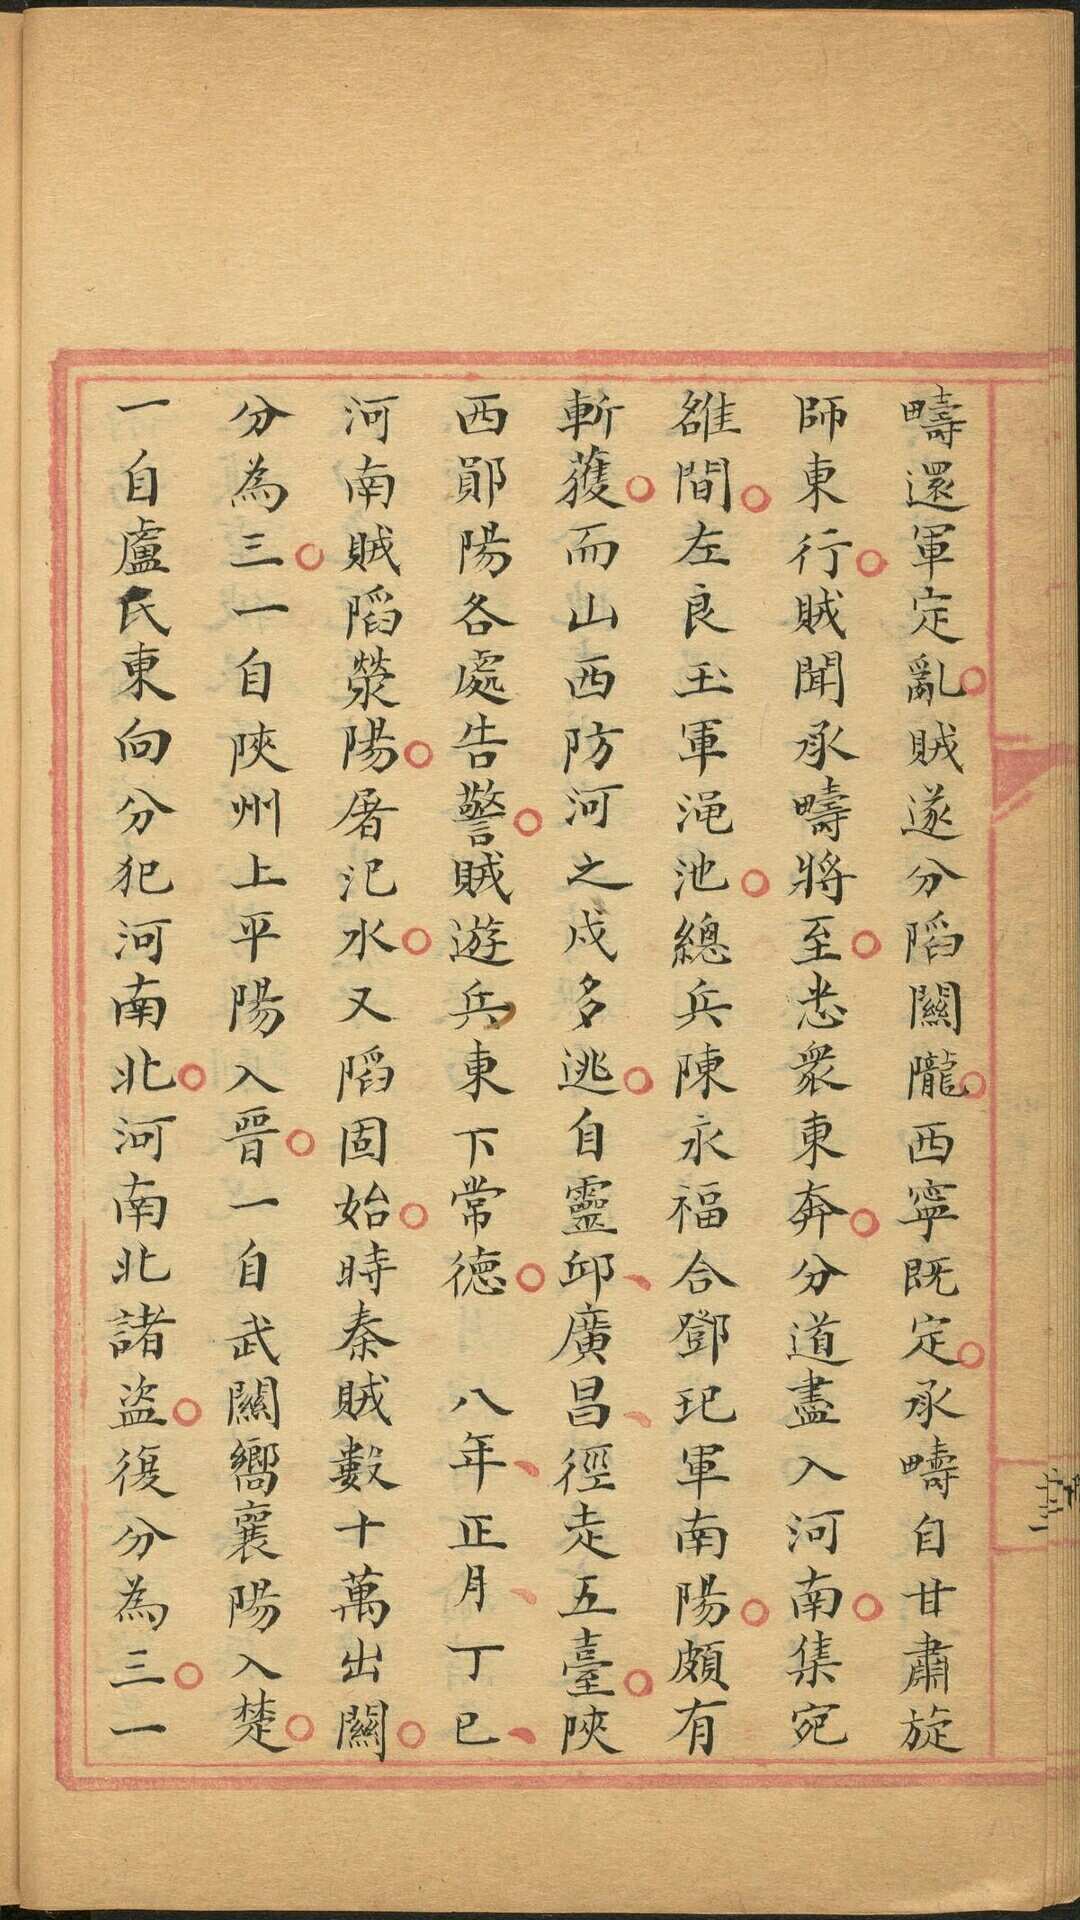 疇還軍定亂賊遂分䧟關隴西寧既定承疇自甘肅旋
師東行賊聞承疇將至悉衆東奔分道盡入河南集宛
雒間左良玉軍澠池總兵陳永福合鄧玘軍南陽頗有
斬獲而山西防河之戍多逃自靈邱廣昌徑走五臺陝
西鄖陽各處告警賊遊兵東下常德　八年正月丁巳
河南賊䧟滎陽屠汜水又䧟固始時秦賊數十萬出關
分為三一自陝州上平陽入晉一自武關嚮襄陽入楚
一自盧氏東向分犯河南北河南北諸盜復分為三一